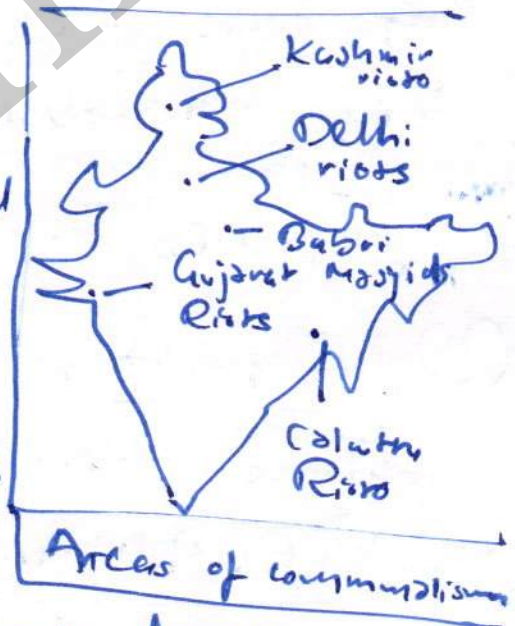 Kashmir
riots
Delhi
riots
Babri
Masjid
Gujarat
Riots
Calcutta
Riots
Areas of communalism